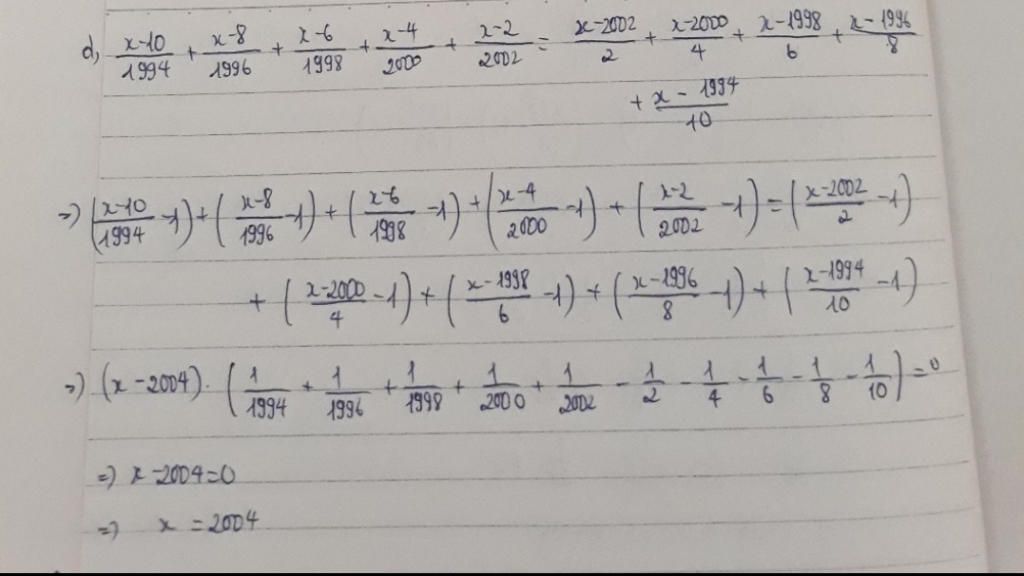 d, \frac{x-10}{1994} + \frac{x-8}{1996} + \frac{x-6}{1998} + \frac{x-4}{2000} + \frac{x-2}{2002} = \frac{x-2002}{2} + \frac{x-2000}{4} + \frac{x-1998}{6} + \frac{x-1996}{8}
+ \frac{x-1994}{10}
=> (\frac{x-10}{1994} -1) + (\frac{x-8}{1996} -1) + (\frac{x-6}{1998} -1) + (\frac{x-4}{2000} -1) + (\frac{x-2}{2002} -1) = (\frac{x-2002}{2} -1)
+ (\frac{x-2000}{4} -1) + (\frac{x-1998}{6} -1) + (\frac{x-1996}{8} -1) + (\frac{x-1994}{10} -1)
=> (x-2004) . (\frac{1}{1994} + \frac{1}{1996} + \frac{1}{1998} + \frac{1}{2000} + \frac{1}{2002} - \frac{1}{2} - \frac{1}{4} - \frac{1}{6} - \frac{1}{8} - \frac{1}{10}) = 0
=> x-2004=0
=> x = 2004